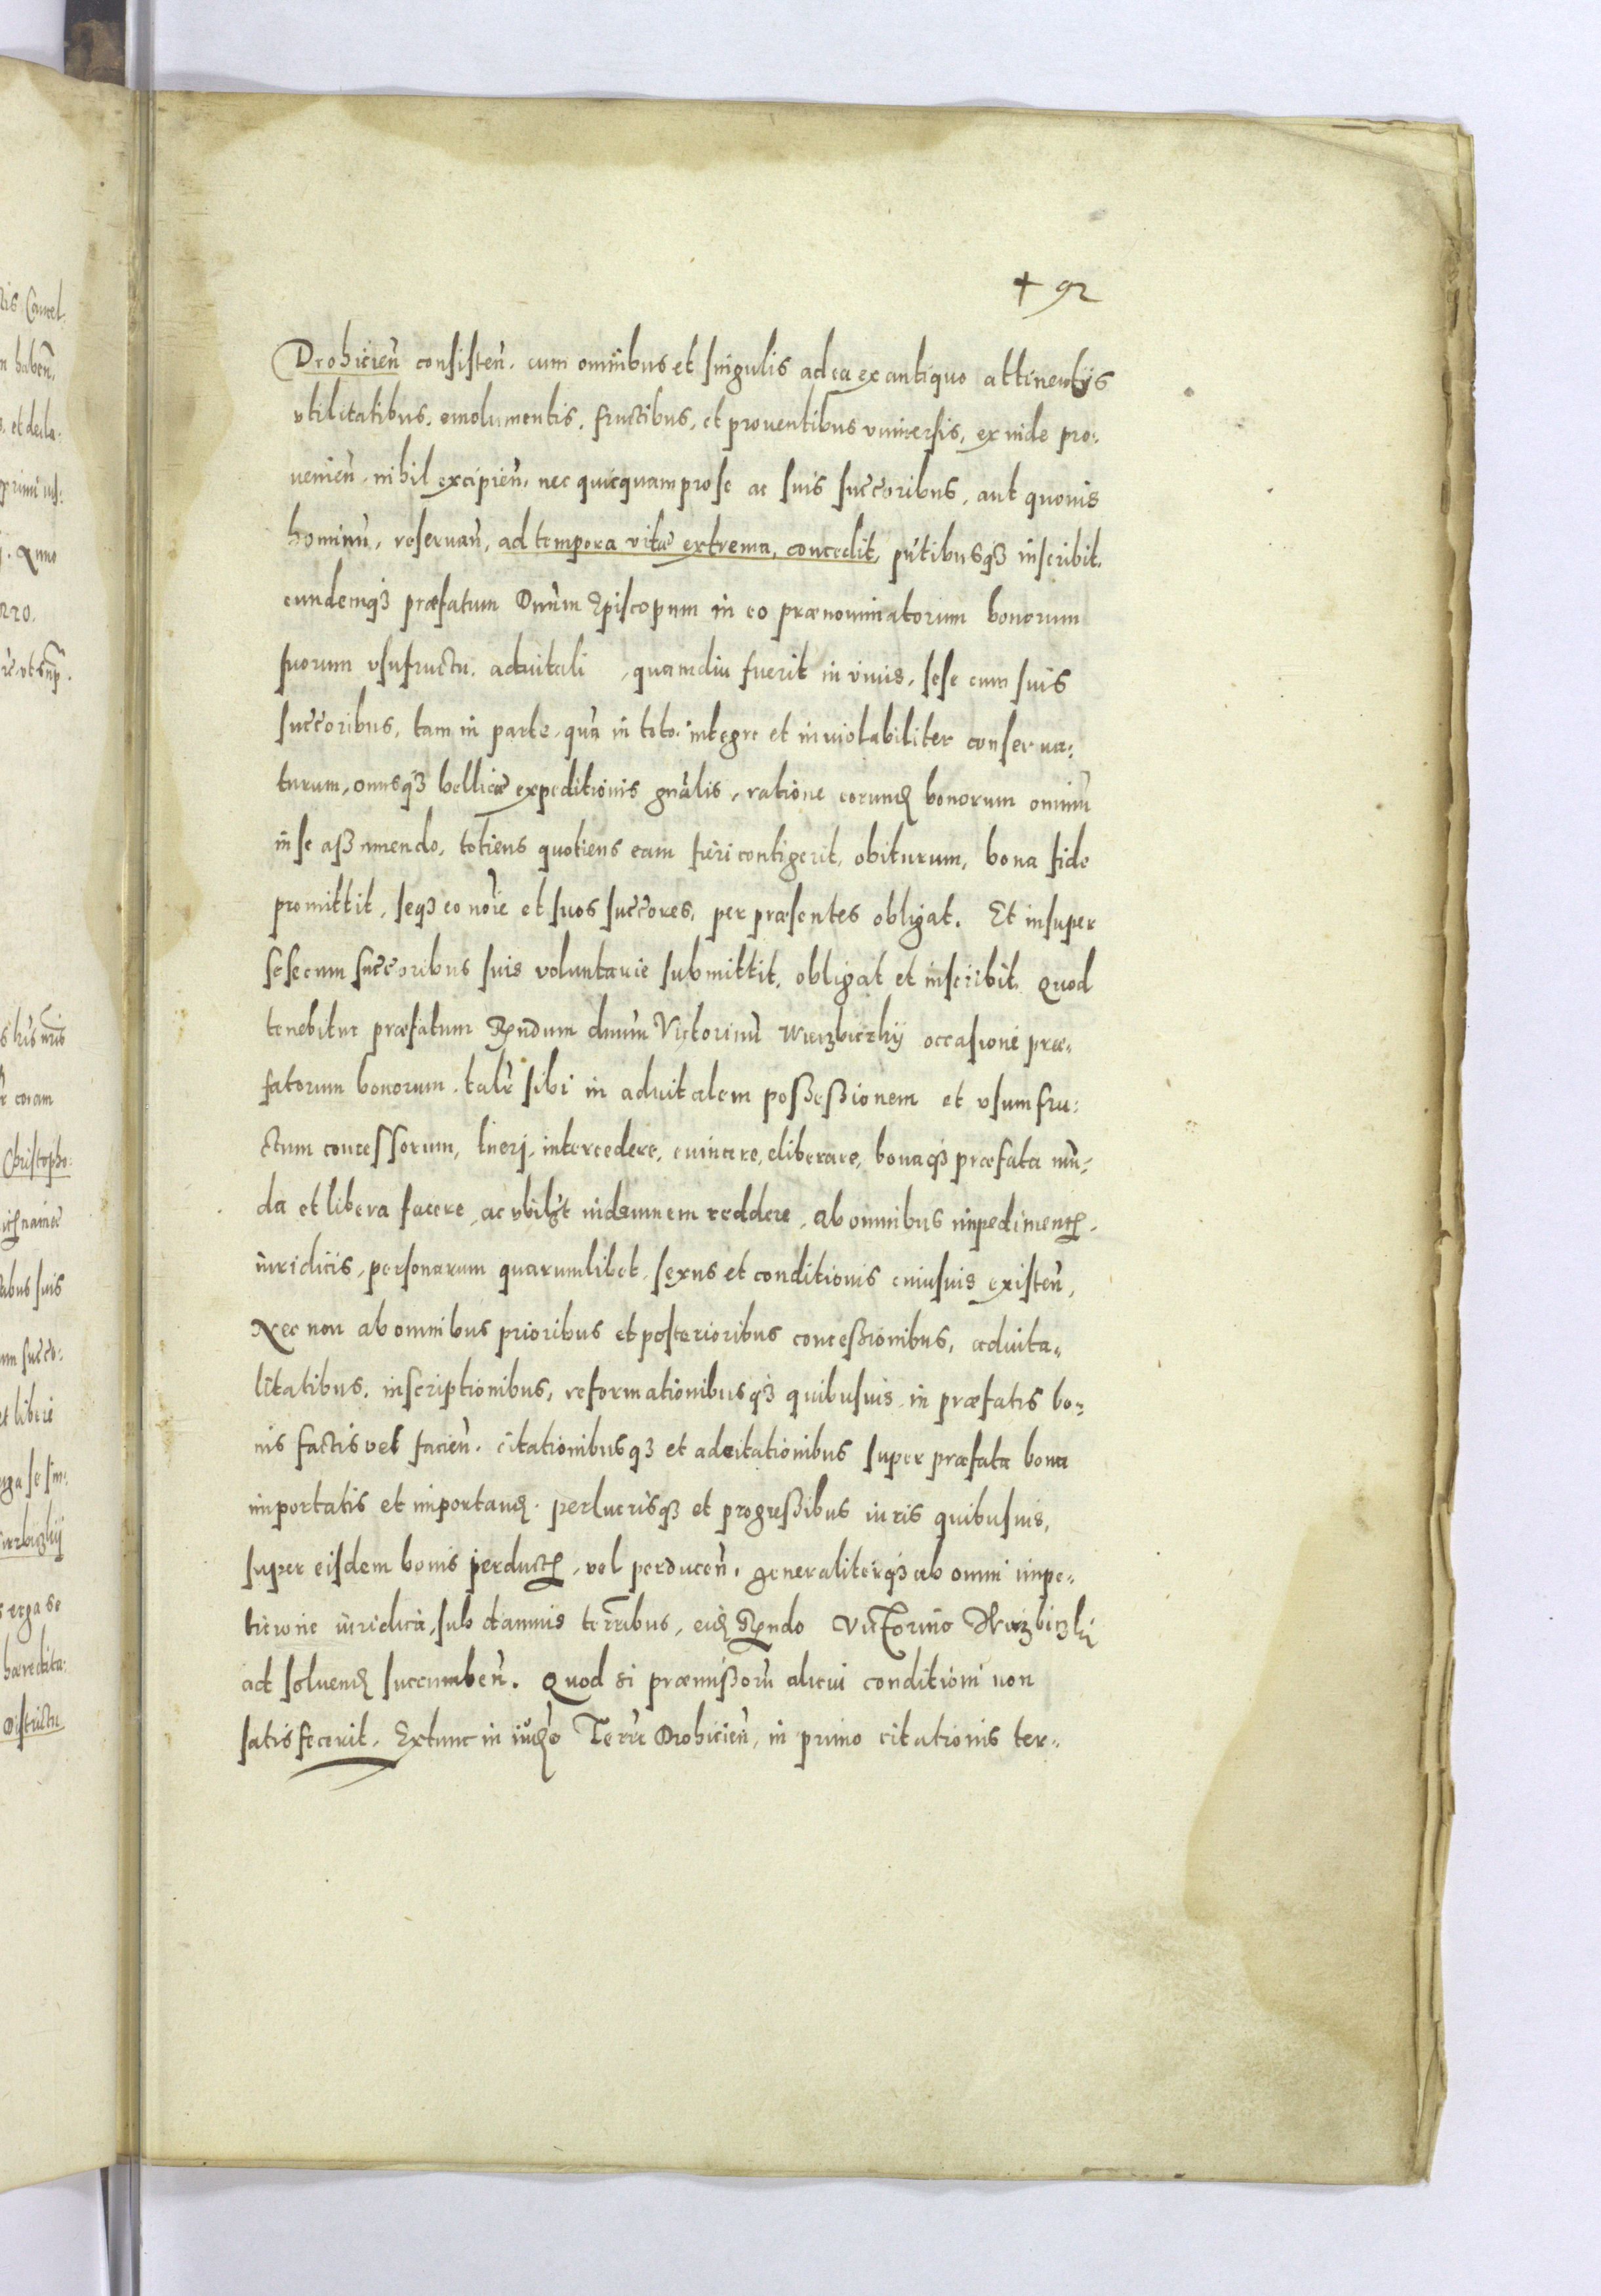 + 92
Drohicien̄ consisten̄. cum omnibus et singulis ad ea ex antiquo attinentijs
vtilitatibus, emolumentis, fructibus, et prouentibus vniuersis, ex inde pro:
uenien̄, nihil excipien̄, nec quicquam pro se ac suis succ̄oribus, aut quouis
hominū, reseruan̄, ad tempora vitæ extrema, concedit, pn̄tibusqꝫ inscribit.
eundemqꝫ præfatum Dn̄um Episcopum in eo prænominatorum bonorum
suorum vsufructu, aduitali, quamdiu fuerit in viuis, sese cum suis
succ̄oribus, tam in parte, quā in toto, integre et inuiolabiliter conserua:
turum, onusqꝫ bellicæ expeditionis gn̄alis, ratione eorund bonorum omniū
in se aßumendo, totiens quotiens eam fieri contigerit, obiturum, bona fide
promittit, seqꝫ eo noīe et suos succ̄ores, per præsentes obligat. Et insuper
sese cum succ̄oribus suis voluntarie submittit, obligat et inscribit. Quod
tenebitur præfatum Rn̄dum dn̄um Victorinū Wierzbiczkij occasione præ=
fatorum bonorum. talr̄ sibi in aduitalem poßeßionem et vsumfru:
ctum concessorum, tueri, intercedere, euincere, eliberare, bonaqꝫ præfata mu=
da et libera facere, ac vbilꝫt indemnem reddere, ab omnibus impediment
iuridicis, personarum quarumlibet, sexus et conditionis cuiusuis existen̄,
Nec non ab omnibus prioribus et posterioribus conceßionibus, aduita=
litatibus, inscriptionibus, reformationibusqꝫ quibusuis, in præfatis bo=
nis factis vel facien̄. citationibusqꝫ et adcitationibus super præfata bona
importatis et importand. perlucrisqꝫ et progreßibus iuris quibusuis,
super eisdem bonis perduct, vel perducen̄, generaliterqꝫ ab omni impe=
titione iuridica, sub damnis terr̄ibus, eid Rn̄do Victorino Wierzbiczki
ad soluend succumben̄. Quod si præmißorū alicui conditioni non
satisfecerit. Extunc in iud̄o Terr̄e Drohicien̄, in primo citationis ter=